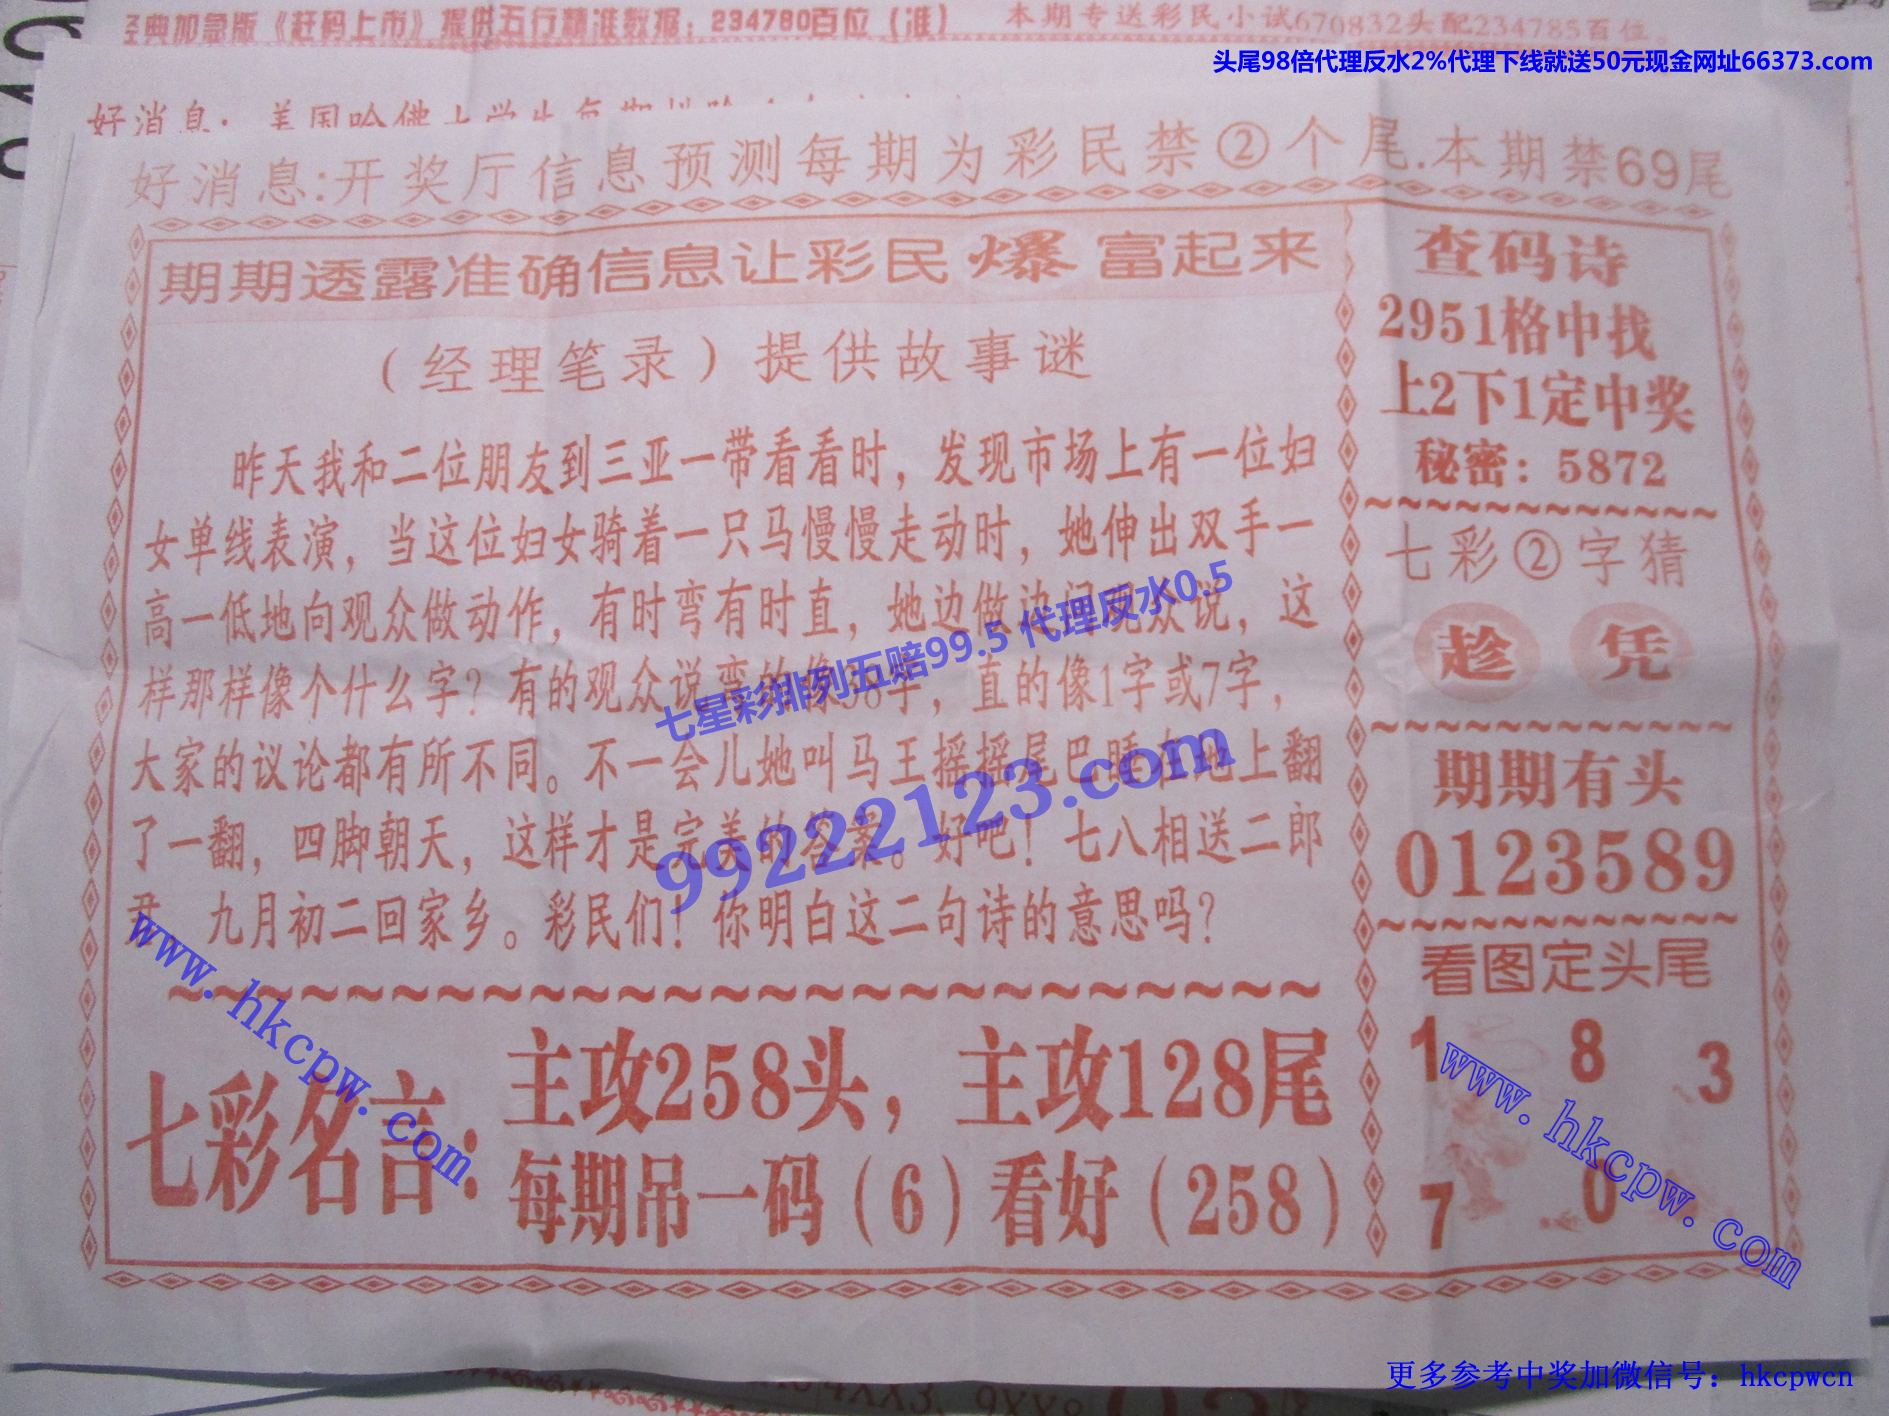 经典加急版《赶码上市》提供五行精准数据：234780百位（准）
本期专送彩民小试670832头配234785百位。
头尾98倍代理反水2%代理下线就送50元现金网址66373.com
好消息：美国哈佛大学生每期
好消息:开奖厅信息预测每期为彩民禁②个尾.本期禁69尾
期期透露准确信息让彩民爆富起来
（经理笔录）提供故事谜
昨天我和二位朋友到三亚一带看看时，发现市场上有一位妇
女单线表演，当这位妇女骑着一只马慢慢走动时，她伸出双手一
高一低地向观众做动作，有时弯有时直，她边做边问观众说，这
样那样像个什么字？有的观众说弯的像36字，直的像1字或7字，
大家的议论都有所不同。不一会儿她叫马王摇摇尾巴睡在地上翻
了一翻，四脚朝天，这样才是完美的答案。好吧！七八相送二郎
君，九月初二回家乡。彩民们！你明白这二句诗的意思吗？
七星彩排列五赔99.5 代理反水0.5
99222123.com
七彩名言：
主攻258头，主攻128尾
每期吊一码（6）看好（258）
www.hkcpw.com
查码诗
2951格中找
上2下1定中奖
秘密：5872
七彩②字猜
趁 凭
期期有头
0123589
看图定头尾
1 8 3
7 0
www.hkcpw.com
更多参考中奖加微信号：hkcpwcn